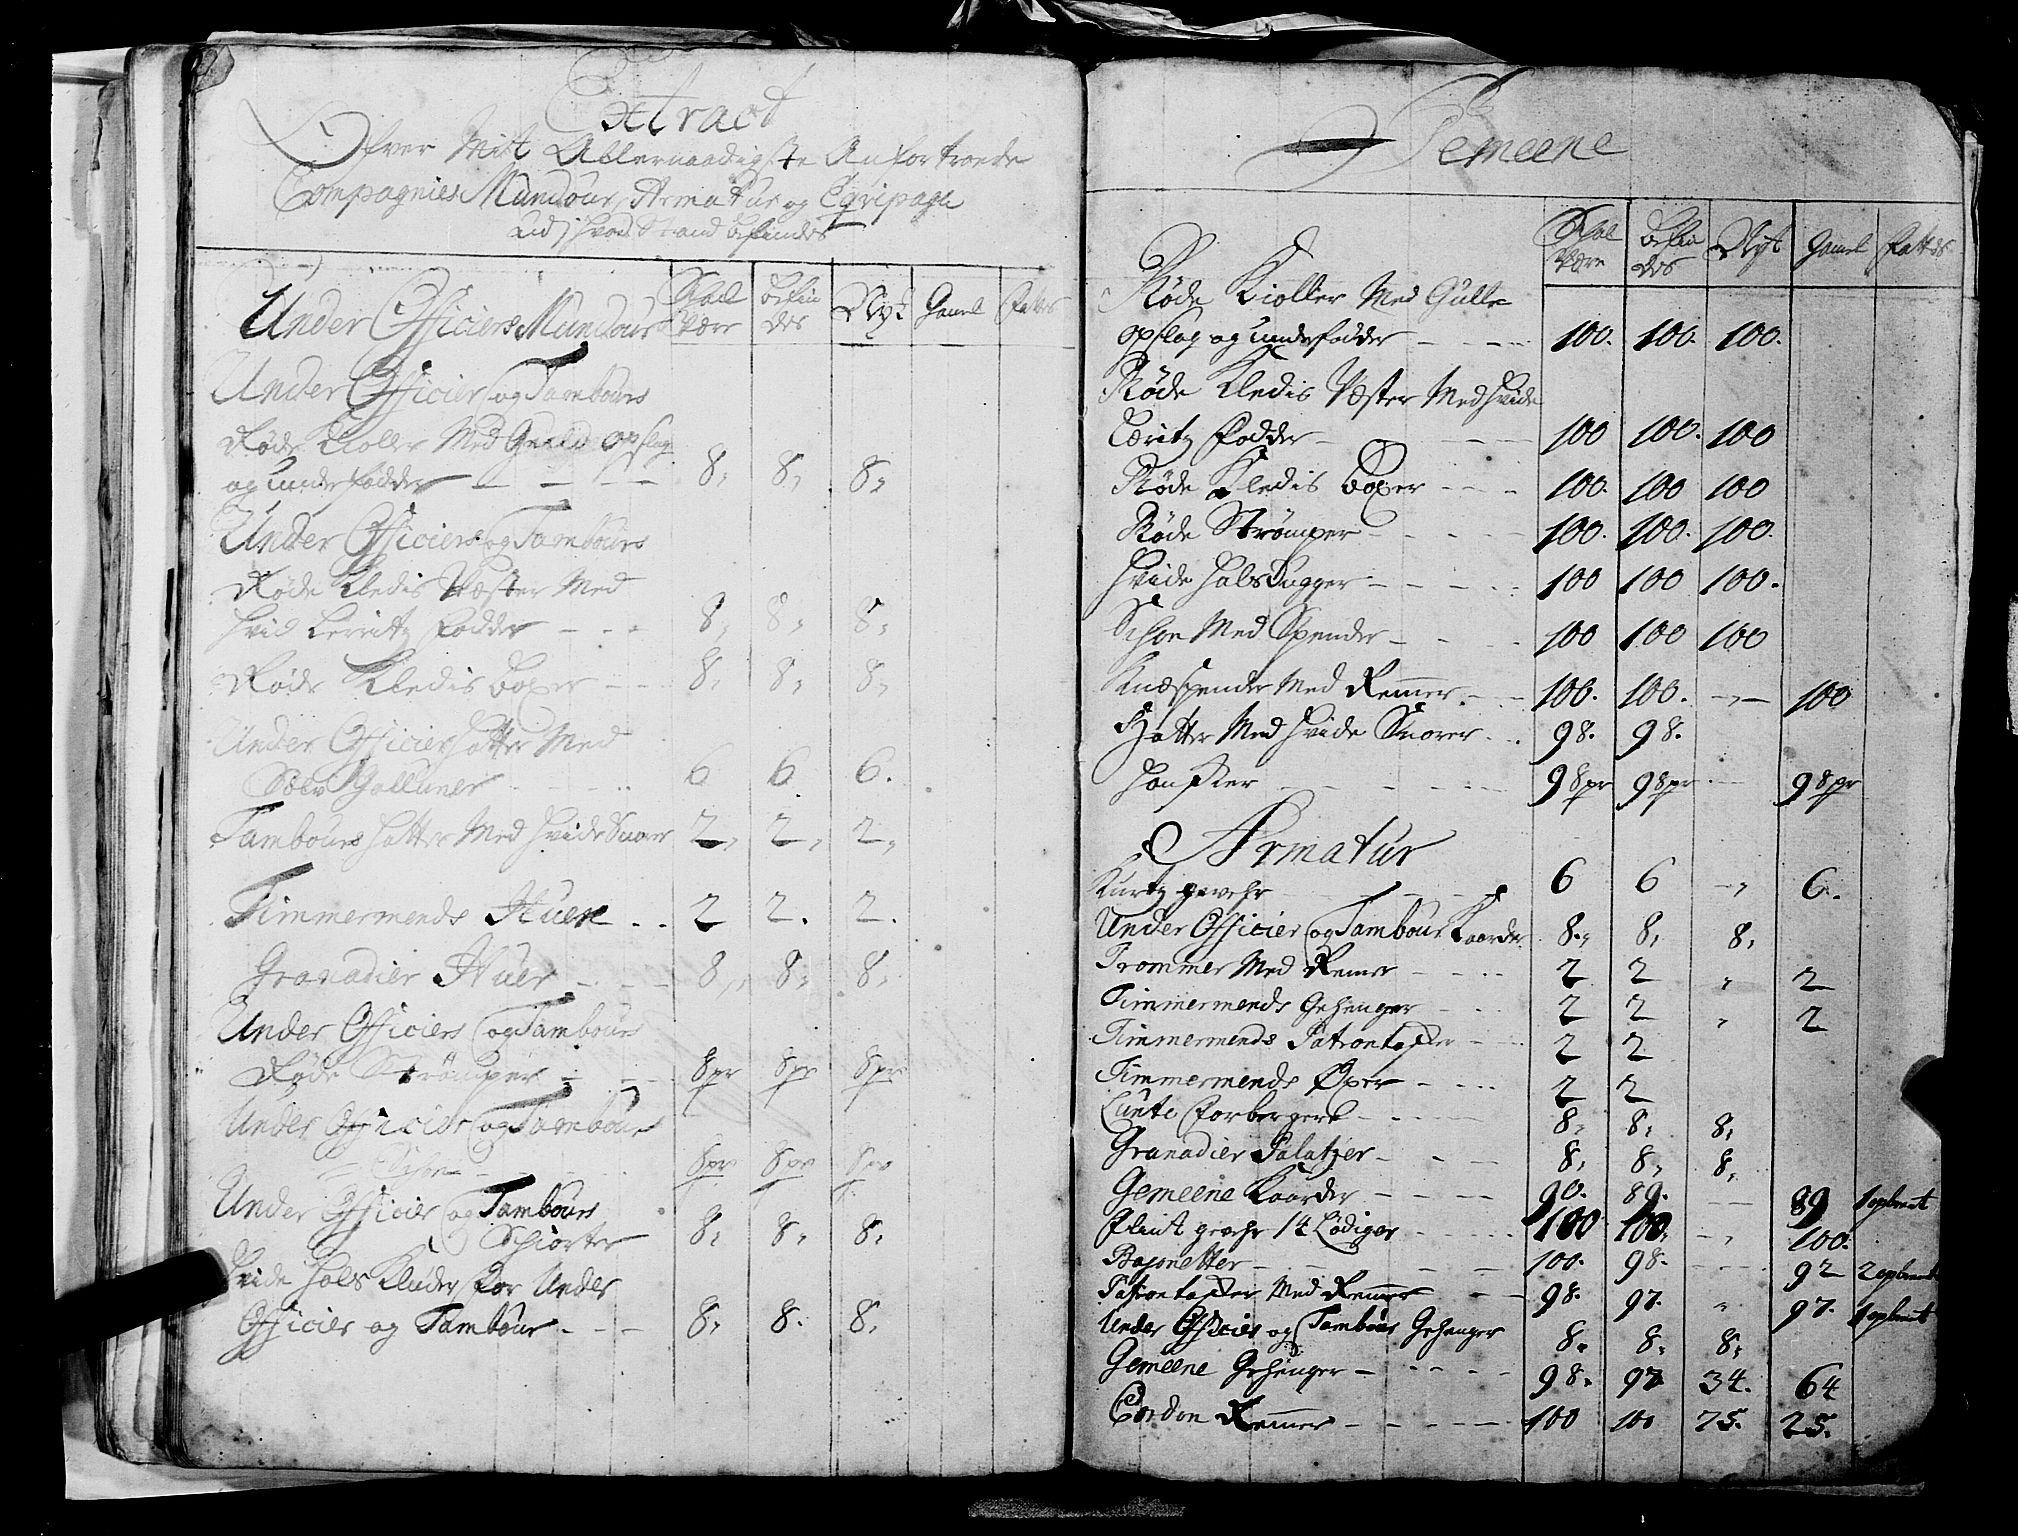 Extract
Ofver Mit Allernaadigste Anfortroede
Compagnies Mundour, Armatur og Eqvipage
udj hvad Stand befindes
Under Officiers Mundour Skal være befindes Nyt Gamel Fattes
Under Officier og Tambours
Røde Kioller Med Guule opslag
og underfodder 8, 8, 8,
Under Officiers og Tambours
Røde Kledis Væster Med
hvid Lerritz Fodder 8, 8, 8,
Røde Kledis boxer 8, 8, 8,
Under Officiers hatter Med
Sølv Galluner 6 6 6.
Tambours hatter Med hvide Snorer 2, 2, 2,
Timmermends Huer 2 2. 2.
Granadier Huer 8, 8, 8,
Under Officiers og Tambours
Røde Strömper 8 pr 8 pr 8 pr
Under Officier og Tambours
Schoe 8 pr 8 pr 8 pr
Under Officier og Tambours
Schiorter 8, 8, 8,
hvide hals Kluder for Under
Officier og Tambour 8, 8. 8,
Gemeene
Skal være befindes Nyt Gamel Fattes
Røde Kioller Med Gulle
opslag og underfodder 100. 100. 100.
Røde Kledis Væster Med hvide
Læritz Fodder 100 100. 100
Røde Kledis boxer 100. 100 100
Røde Strømper 100. 100. 100.
hvide halsdugger 100 100 100.
Schoe Med Spender 100 100 100
Knæspender Med Remmer 100. 100. 100
Hatter Med hvide Snorer 98. 98.
hansker 98 pr 98 pr 98 pr
Armatur
Kurtz gevehr 6 6 6.
Under Officier og Tambour Kaarder 8, 8, 8,
Trommer Med Remer 2 2 2
Timmermends Gehenger 2 2 2
Timmermends Patrontasker 2 2
Timmermends Øxer 2 2
Lunte Forbergere 8, 8, 8,
Granadier Palatzer 8, 8, 8,
Gemeene Kaarder 90. 89. 89 1 opbrent
Flint gevehr 14 Lødiger 100 100, 100.
Bajonetter 100. 98. 92 2 opbrent
Patrontasker Med Remmer 98. 97. 97. 1 opbrent
Under Officier og Tambour Gehenger 8, 8, 8,
Gemeene Gehenger 98. 97 34. 64
Cordon Remmer 100 100 75. 25.